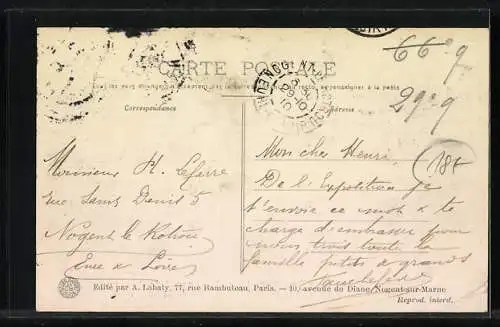 CARTE POSTALE
Correspondance
Adresse
66 9
29 9
18f
Monsieur H. Lefèvre
rue Saint Denis 5
Nogent le Rotrou
Eure & Loire
Mon cher Henri,
De l'Exposition je
t'envoie ce mot & te
charge d'embrasser pour
nous trois toute la
famille petits & grands
Edité par A. Labaty, 77, rue Rambuteau, Paris. — 10, avenue de Diane, Nogent-sur-Marne
Reprod. interd.